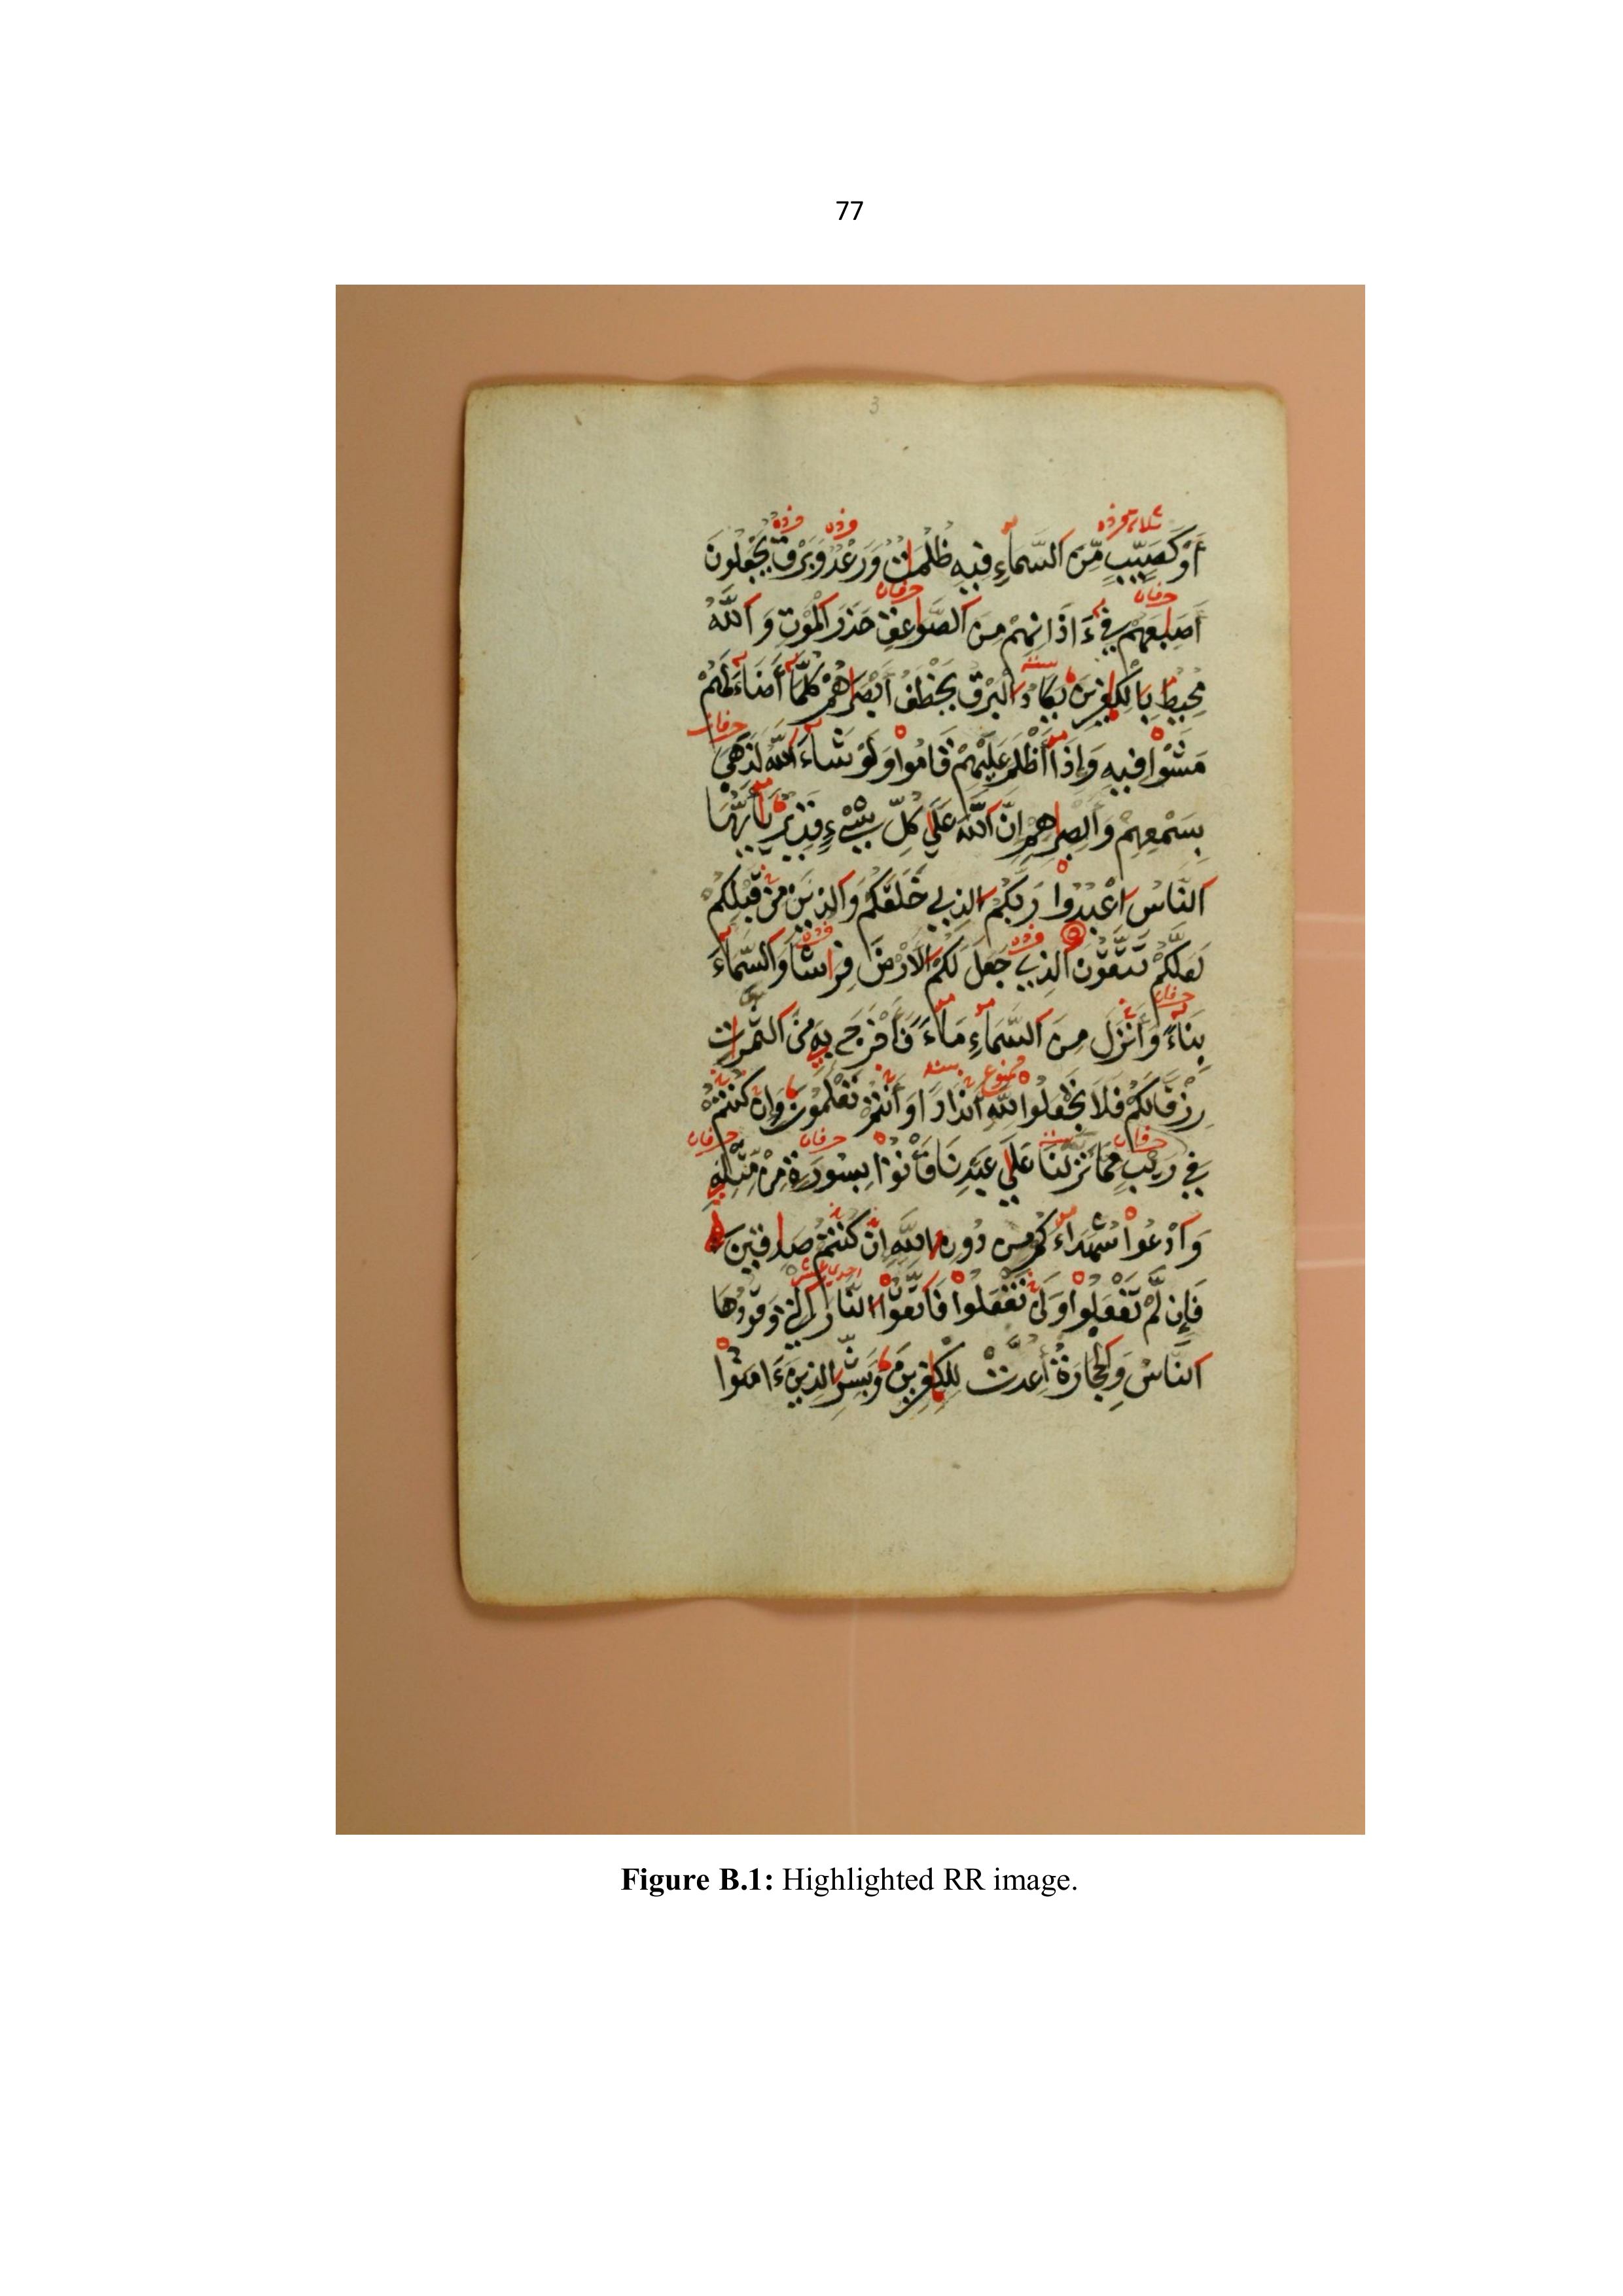 77
3
أَوْ كَصَيِّبٍ مِّنَ السَّمَاءِ فِيهِ ظُلُمَٰتٌ وَرَعْدٌ وَبَرْقٌ يَجْعَلُونَ
أَصَٰبِعَهُمْ فِي ءَاذَانِهِمْ مِنَ الصَّوَٰعِقِ حَذَرَ الْمَوْتِ وَاللَّهُ
مُحِيطٌ بِالْكَٰفِرِينَ يَكَادُ الْبَرْقُ يَخْطَفُ أَبْصَٰرَهُمْ كُلَّمَا أَضَاءَ لَهُمْ
مَشَوْا فِيهِ وَإِذَا أَظْلَمَ عَلَيْهِمْ قَامُوا وَلَوْ شَاءَ اللَّهُ لَذَهَبَ
بِسَمْعِهِمْ وَأَبْصَٰرِهِمْ إِنَّ اللَّهَ عَلَىٰ كُلِّ شَيْءٍ قَدِيرٌ يَا أَيُّهَا
النَّاسُ اعْبُدُوا رَبَّكُمُ الَّذِي خَلَقَكُمْ وَالَّذِينَ مِنْ قَبْلِكُمْ
لَعَلَّكُمْ تَتَّقُونَ الَّذِي جَعَلَ لَكُمُ الْأَرْضَ فِرَاشًا وَالسَّمَاءَ
بِنَاءً وَأَنْزَلَ مِنَ السَّمَاءِ مَاءً فَأَخْرَجَ بِهِ مِنَ الثَّمَرَٰتِ
رِزْقًا لَكُمْ فَلَا تَجْعَلُوا لِلَّهِ أَنْدَادًا وَأَنْتُمْ تَعْلَمُونَ وَإِنْ كُنْتُمْ
فِي رَيْبٍ مِمَّا نَزَّلْنَا عَلَىٰ عَبْدِنَا فَأْتُوا بِسُورَةٍ مِنْ مِثْلِهِ
وَادْعُوا شُهَدَاءَكُمْ مِنْ دُونِ اللَّهِ إِنْ كُنْتُمْ صَٰدِقِينَ
فَإِنْ لَّمْ تَفْعَلُوا وَلَنْ تَفْعَلُوا فَاتَّقُوا النَّارَ الَّتِي وَقُودُهَا
النَّاسُ وَالْحِجَارَةُ أُعِدَّتْ لِلْكَٰفِرِينَ وَبَشِّرِ الَّذِينَ ءَامَنُوا
Figure B.1: Highlighted RR image.